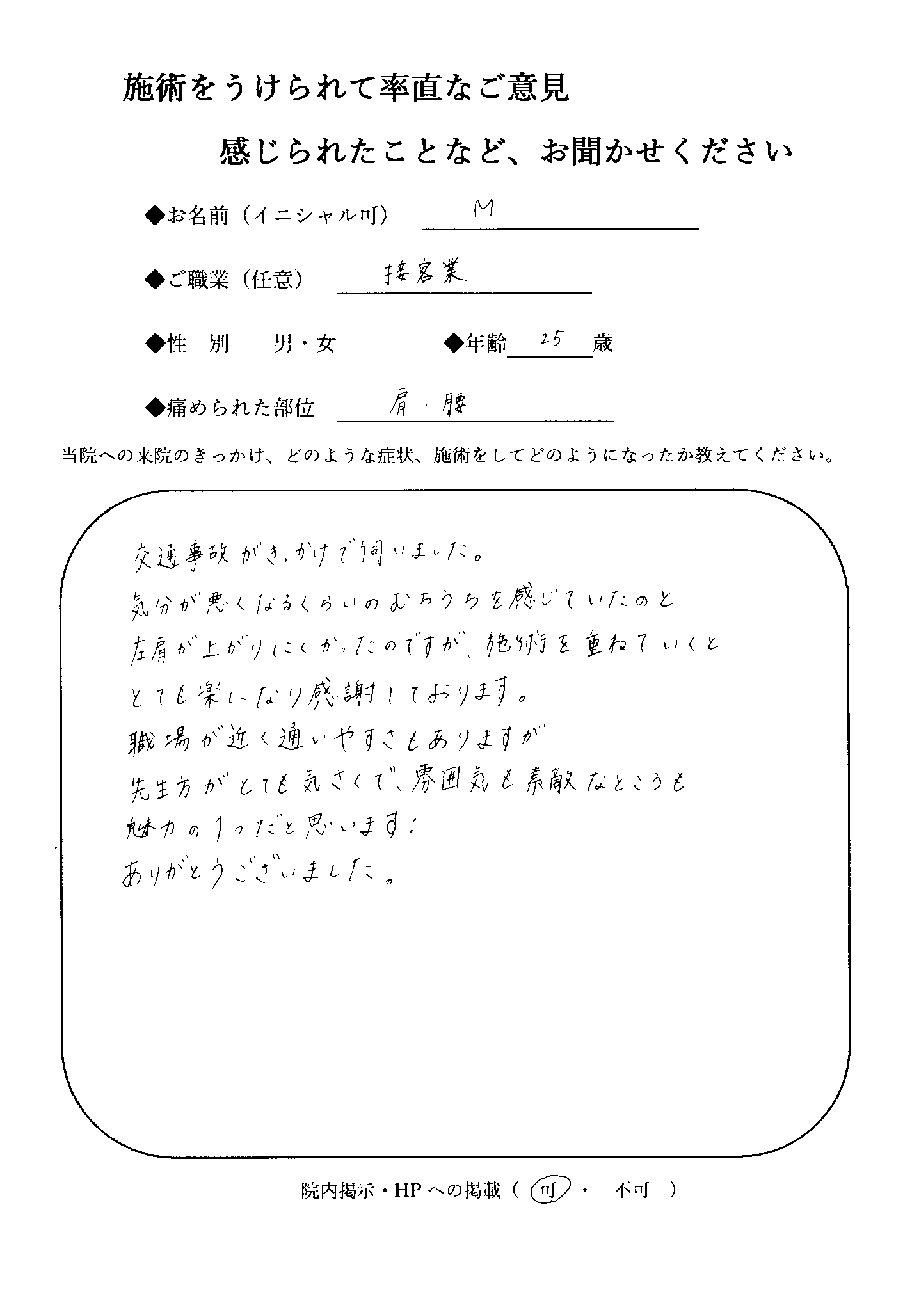 施術をうけられて率直なご意見
感じられたことなど、お聞かせください
◆お名前（イニシャル可） M
◆ご職業（任意） 接客業
◆性 別 男・女 ◆年齢 25 歳
◆痛められた部位 肩・腰
当院への来院のきっかけ、どのような症状、施術をしてどのようになったか教えてください。
交通事故がきっかけで伺いました。
気分が悪くなるくらいのむちうちを感じていたのと
左肩が上がりにくかったのですが、施術を重ねていくと
とても楽になり感謝しております。
職場が近く通いやすさもありますが
先生方がとても気さくで、雰囲気も素敵なところも
魅力の1つだと思います!
ありがとうございました。
院内掲示・HPへの掲載（ 可 ・ 不可 ）